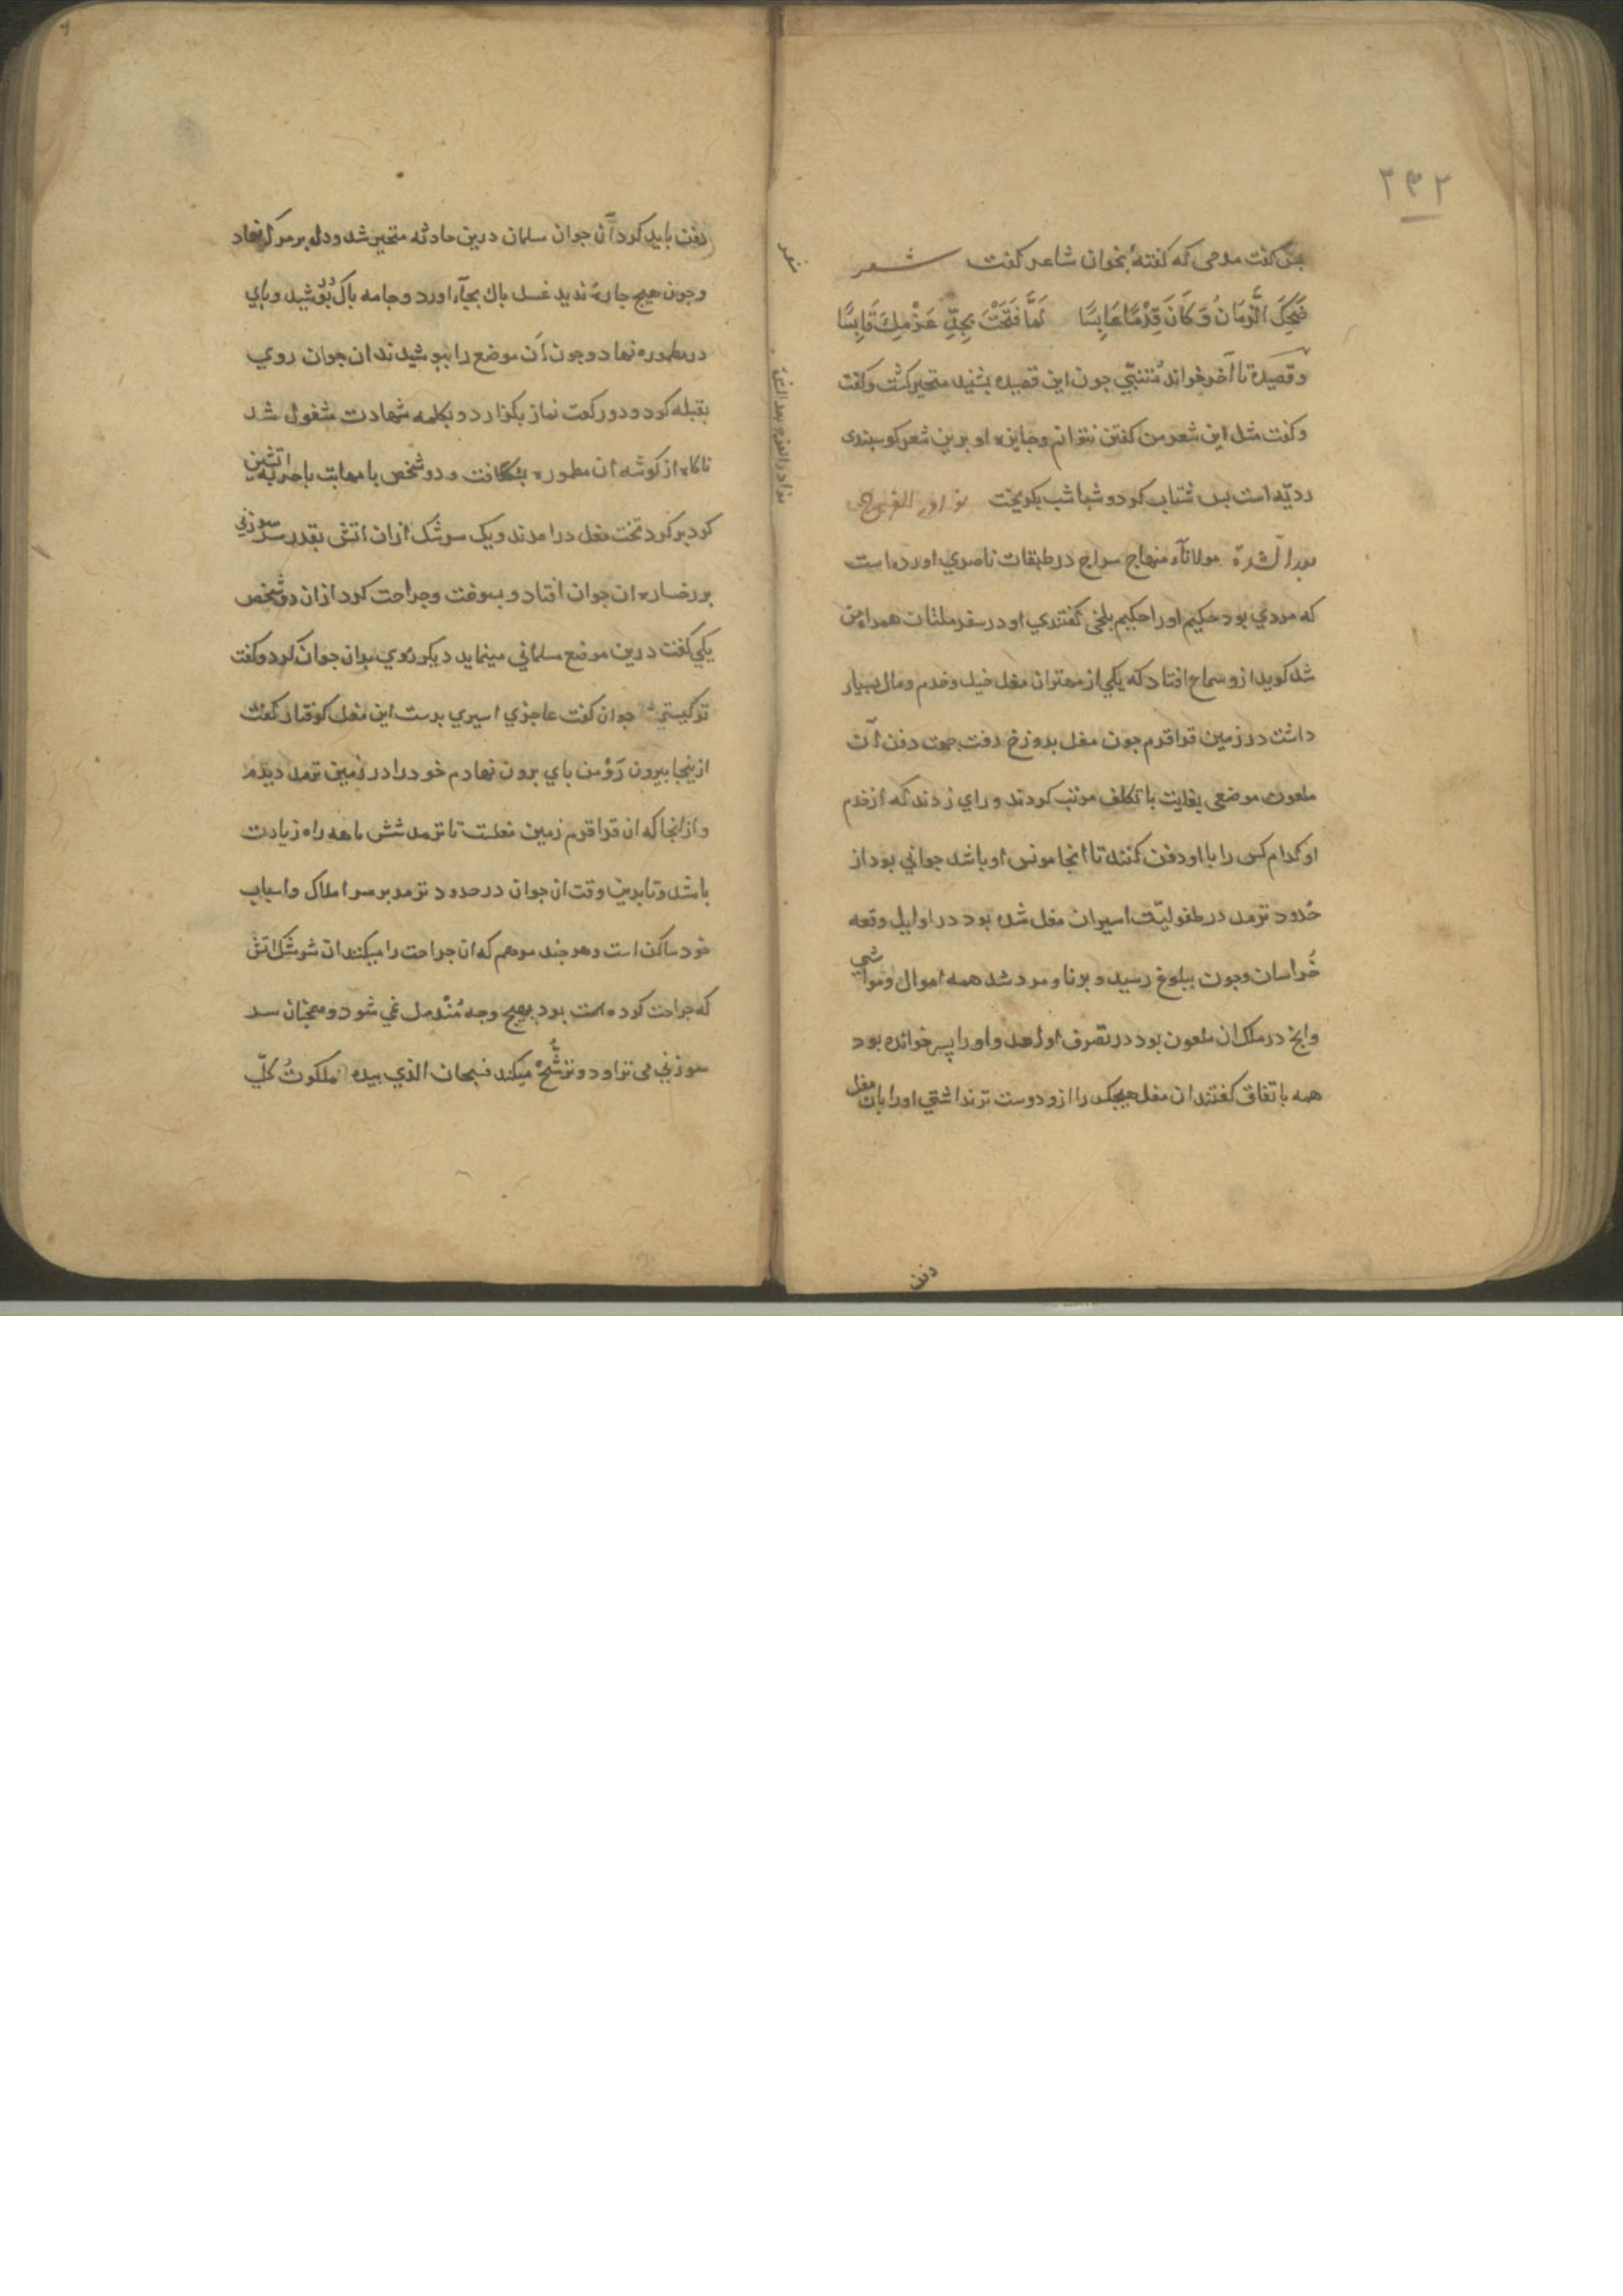 ۲۳۲
پس کفت مدحی که کفتهٔ بخوان شاعر کفت شعر
ضَحِکَ الزَّمَانُ وَکَانَ قِدْمًا عَابِسًا لَمَّا فَتَحْتَ بِجِدِّ عَزْمِكَ قَابِسًا
و قصیده تا آخر خواند مُتنبّی جون این قصیده بشنید متحیر کشت و کفت
و کفت مثل این شعر من کفتن نتوانم و جایزه او برین شعر کوسبندی
ردیّه است بس شتاب کرد و شباشب بکریخت نوادر الفرج
بعد الشدة مولانا منهاج سراج در طبقات ناصری اورده است
که مردی بود حکیم اورا حکیم بلخی کفتندی او در سفر ملتان همراه من
شد کوید ازو سماع افتاد که یکی از مهتران مغل خیل و خدم و مال بسیار
داشت در زمین قراقرم جون مغل بدوزخ رفت جهت دفن آن
ملعون موضعی بغایت با تکلف مرتب کردند و رای زدند که از خدم
او کدام کس را با او دفن کنند تا انجا مونس او باشد جوانی بود از
حُدود ترمد در طفولیّت اسیران مغل شده بود در اوایل وقعه
خُراسان و جون ببلوغ رسید و برنا و مرد شد همه اموال و مواشی
وانج در ملک ان ملعون بود در تصرف او امد و اورا پسر خوانده بود
همه باتفاق کفتند ان مغل هیجکس را ازو دوست تر نداشتی اورا بان مغل
دفن
شعر
نوادر الفرج بعد الشدة
دفن باید کرد آن جوان مسلمان درین حادثه متحیر شد و دل بر مرک نهاد
و جون هیج جارهٔ ندید غسل باك بجا اورد و جامه باک در بوشید و بای
در مطموره نهاد و جون آن موضع را ببوشیدند ان جوان روی
بقبله کرد و دو رکعت نماز بکزارد و بکلمه شهادت مشغول شد
ناکاه از کوشه ان مطموره بشکافت و دو شخص با مهابت با حربه اتشین
کرد بر کرد تخت مغل درامدند و یک سرشک ازان اتش بقدر سر سوزنی
بر رخساره ان جوان افتاد و بسوخت و جراحت کرد ازان دو شخص
یکی کفت درین موضع مسلمانی مینماید دیکر روی بدان جوان کرد و کفت
تو کیستی جوان کفت عاجزی اسیری بدست این مغل کرفتار کفت
ازینجا بیرون رَو من بای برون نهادم خودرا در زمین ترمد دیدم
و ازانجا که ان قراقرم زمین مغلست تا ترمد شش ماهه راه زیادت
باشد و تا بدین وقت ان جوان در حدود ترمد بر سر املاک و اسباب
خود ساکن است و هر جند مرهم که ان جراحت را میکنند ان سرشک اتش
که جراحت کرده است بود بهیج وجه مُندمل نمی شود و همجنان سر
سوزنی می تراود و ترشُّح میکند فسبحان الذی بیده ملکوتُ کلِّ